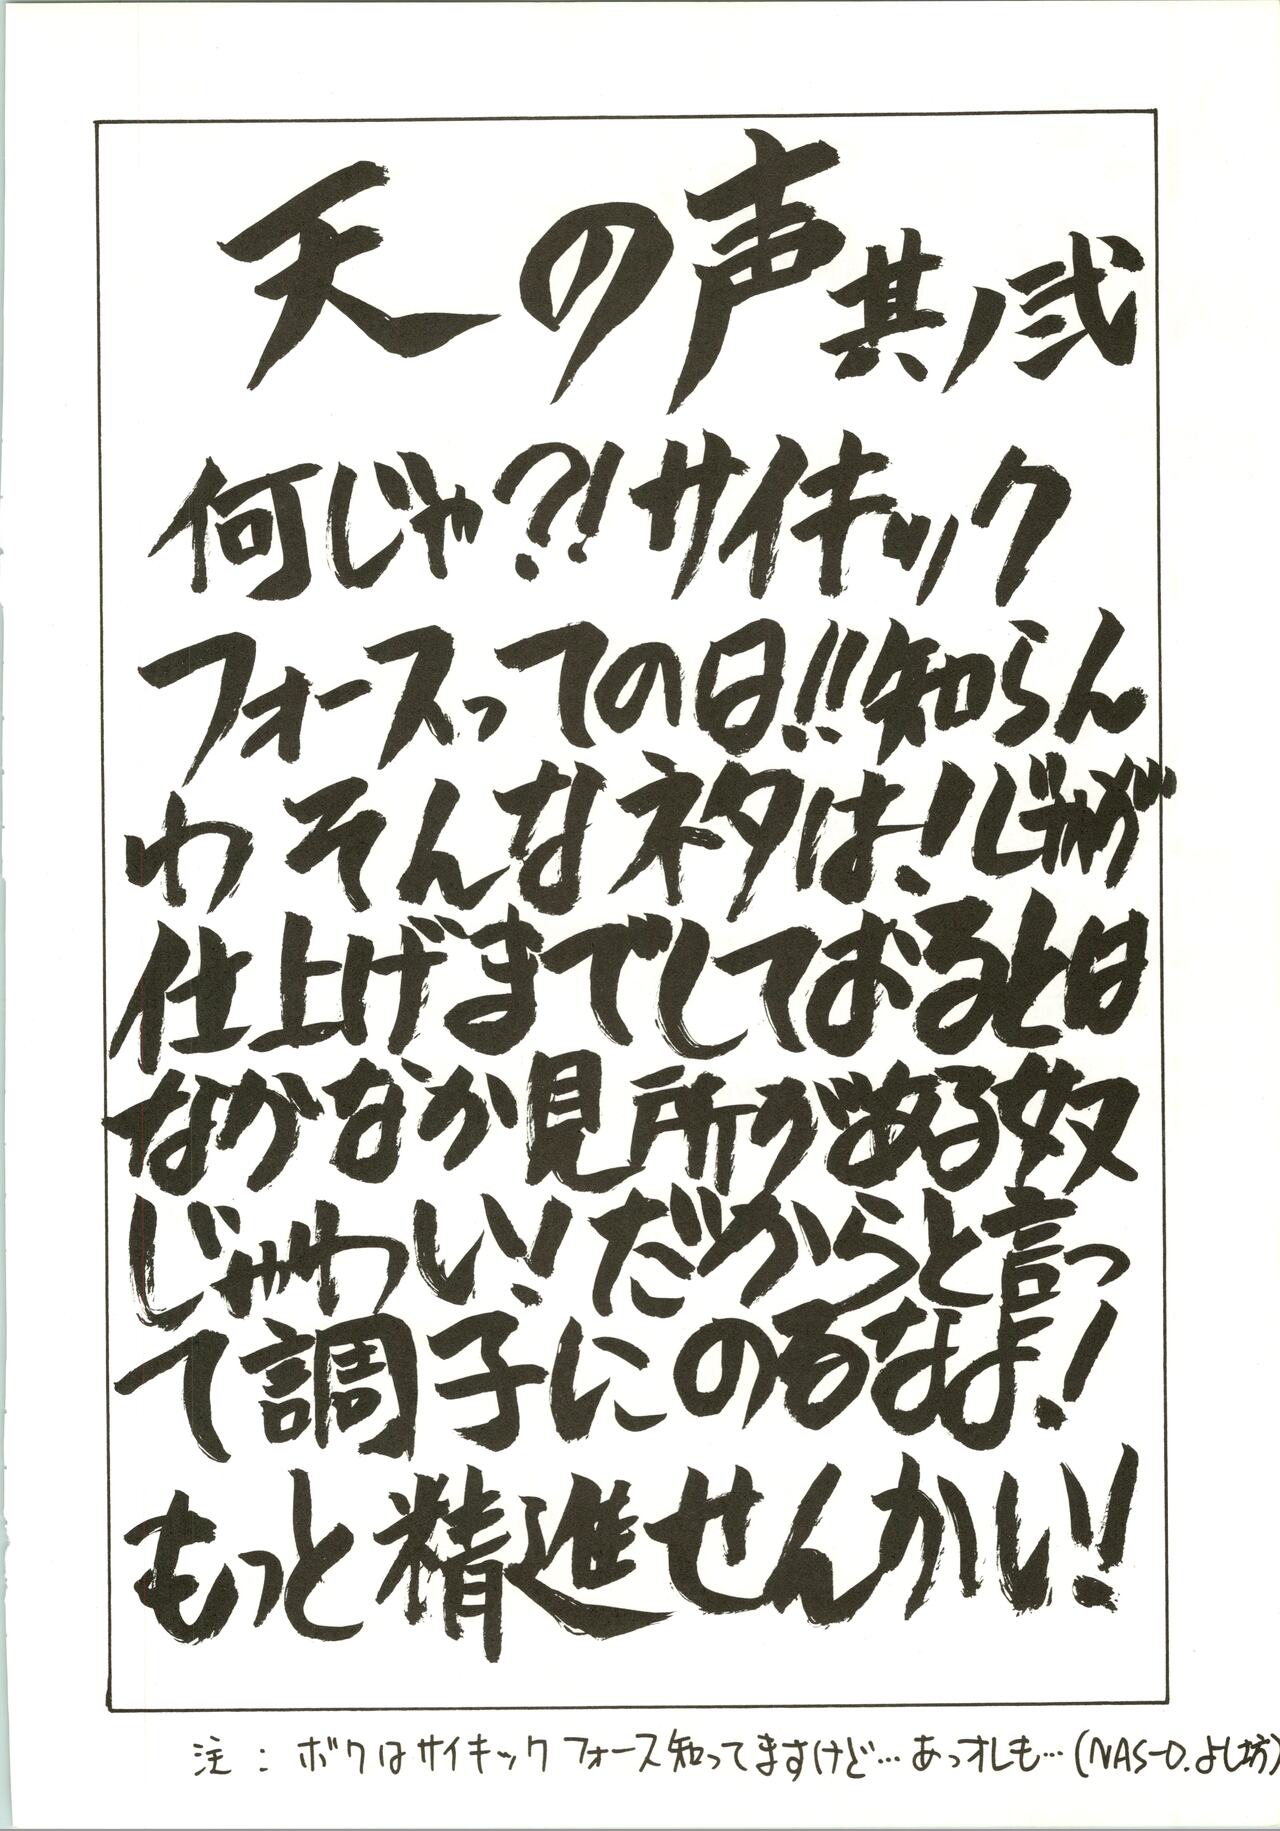 天の声其ノ弐
何じゃ?!サイキック
フォースってのは!!知らん
わそんなネタは!じゃが
仕上げまでしておるとは
なかなか見所がある奴
じゃわい!だからと言っ
て調子にのるなよ!
もっと精進せんかい!
注:ボクはサイキックフォース知ってますけど…あっオレも…(NAS-O.よし坊)